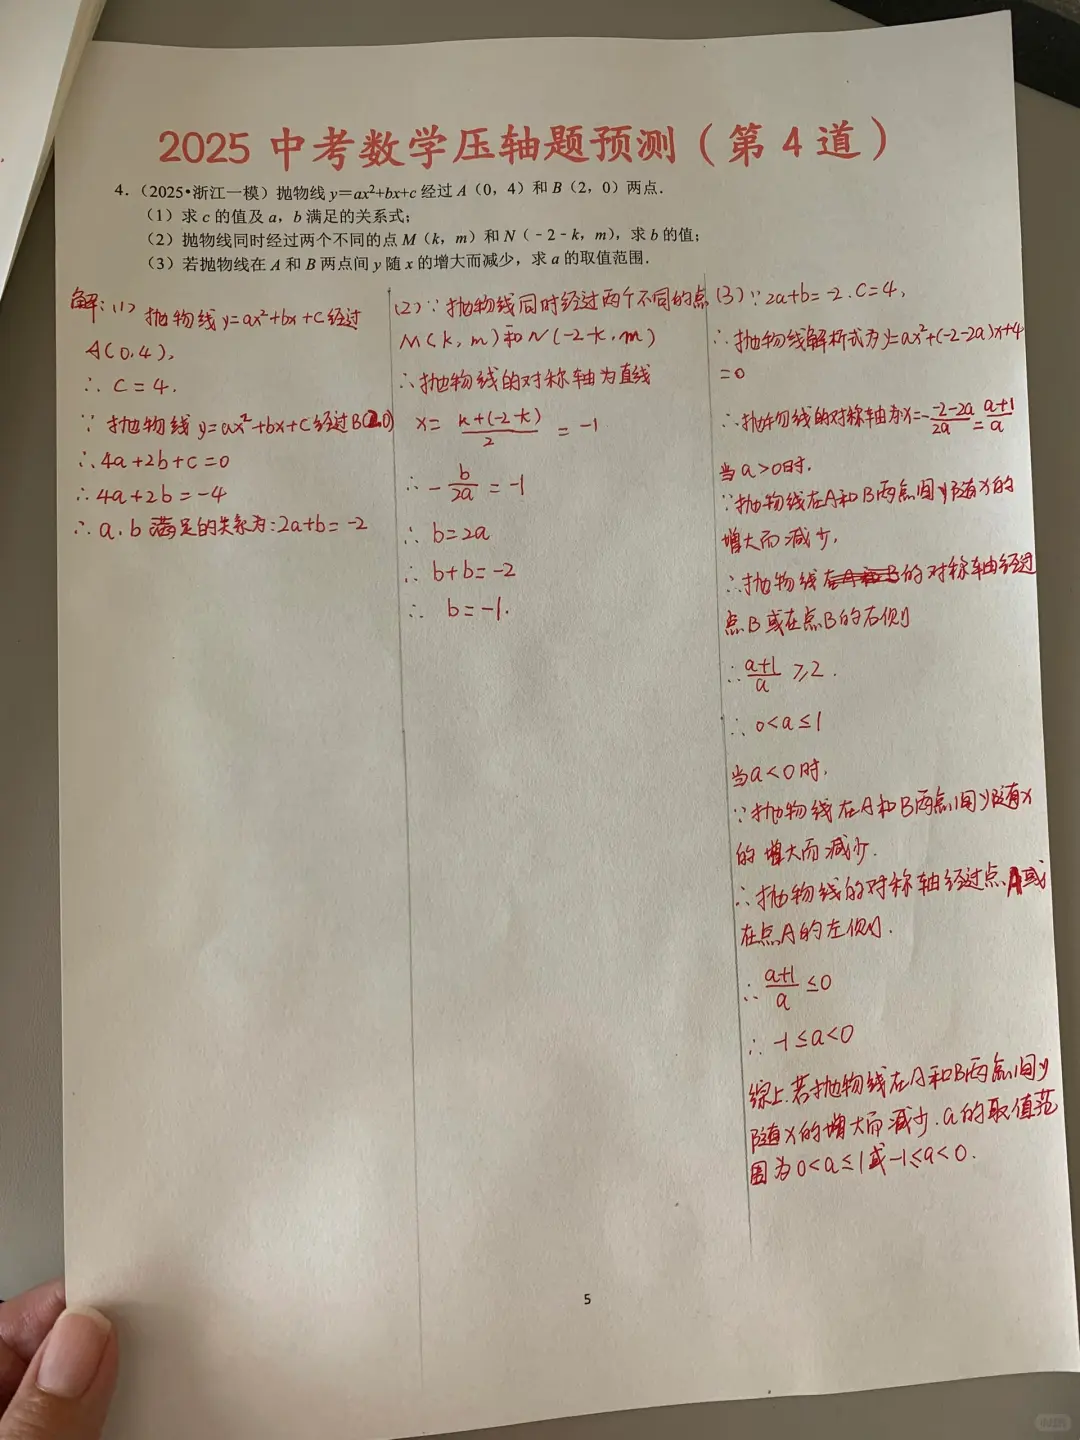 2025 中考数学压轴题预测（第 4 道）
4.（2025•浙江一模）抛物线 y＝ax²+bx+c 经过 A（0，4）和 B（2，0）两点.
（1）求 c 的值及 a，b 满足的关系式；
（2）抛物线同时经过两个不同的点 M（k，m）和 N（﹣2﹣k，m），求 b 的值；
（3）若抛物线在 A 和 B 两点间 y 随 x 的增大而减少，求 a 的取值范围.
解：(1) 抛物线 y=ax²+bx+c经过
A(0,4),
∴ c=4.
∵ 抛物线 y=ax²+bx+c经过B(2,0)
∴4a+2b+c=0
∴4a+2b=-4
∴a.b 满足的关系为:2a+b=-2
(2)∵抛物线同时经过两个不同的点
M(k,m)和N(-2-k,m)
∴抛物线的对称轴为直线
x= k+(-2-k)/2 = -1
∴ - b/2a = -1
∴ b=2a
∴ b+b=-2
∴ b=-1.
(3)∵2a+b=-2.c=4,
∴抛物线解析式为y=ax²+(-2-2a)x+4
=0
∴抛物线的对称轴为x=- -2-2a/2a = a+1/a
当a>0时.
∵抛物线在A和B两点间y随x的
增大而减少.
∴抛物线在A和B的对称轴经过
点B或在点B的右侧
∴ a+1/a ≥2.
∴ 0<a≤1
当a<0时,
∵抛物线在A和B两点间y随x
的增大而减少.
∴抛物线的对称轴经过点A或
在点A的左侧.
∴ a+1/a ≤0
∴ -1≤a<0
综上.若抛物线在A和B两点间y
随x的增大而减少.a的取值范
围为0<a≤1或-1≤a<0.
5